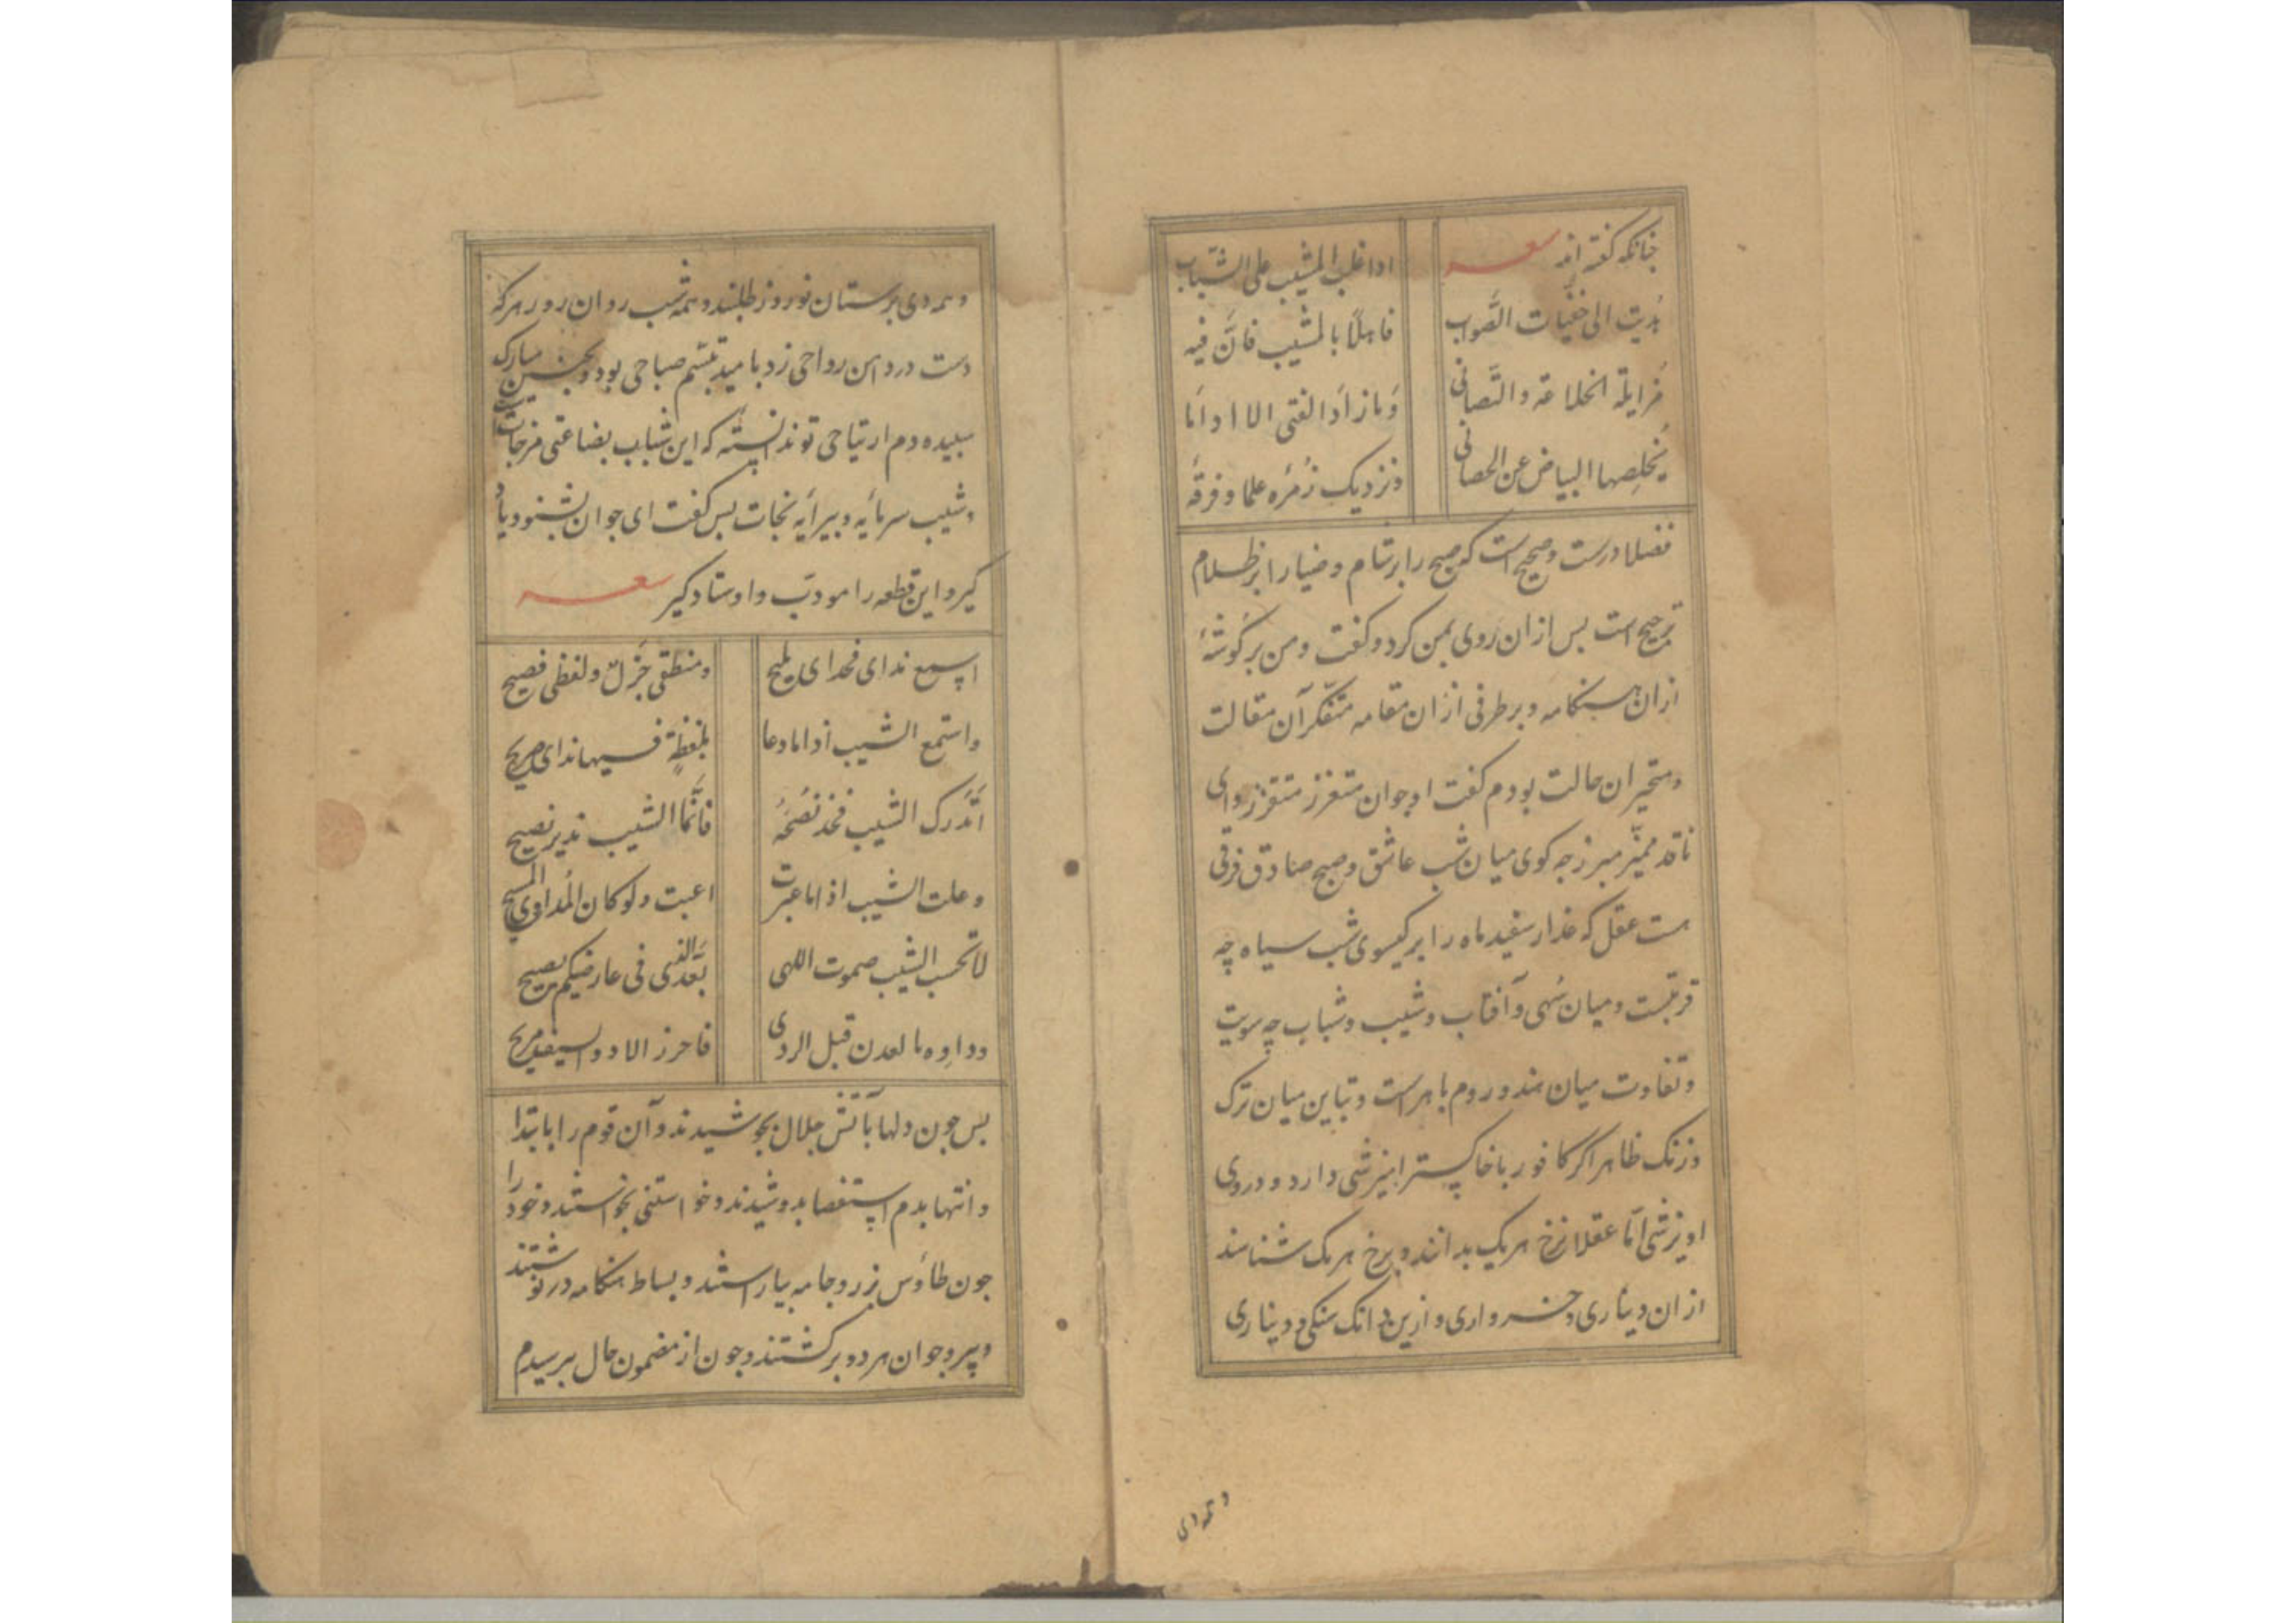 چنانکه گفته اند شعر
اذا غلب المشیب علی الشّباب
هُدیت الی خفیّات الصَّواب
فاهلًا بالمشیب فانَّ فیه
مُزایلة الخلاعة والتَّصابی
وَما زادَ الفتی الا اذا ما
یُخلِصها البیاض عن الخصابی
ونزدیک زُمرَه علما و فرقهٔ
فضلا درست و صحیح است که صبح را بر شام و ضیا را بر ظلام
ترجیح است بس ازان روی بمن کرد و کفت و من بر کوشهٔ
ازان هنکامه و بر طرفی ازان مقامه متفکر آن مقالت
و متحیر ان حالت بودم کفت ای جوان متعزز متقزز و ای
ناقد ممیّز مبرز چه کوی میان شب عاشق و صبح صادق فرقی
هست عقل که عذار سفید ماه را بر کیسوی شب سیاه چه
قربتست و میان سُهی و آفتاب و شیب و شباب چه سویت
و تفاوت میان هند و روم باهر است و تباین میان ترک
و زنک ظاهر اکر کافور با خاکستر امیزشی دارد و در وی
اویزشی امّا عقلا نرخ هر یک بدانند و برخ هر یک شناسند
ازان دیناری و خرواری و ازین دانک سنکی و دیناری
وهمه دی
وهمه دی برستان نوروز طلبند و همه شب روان روز هرکه
دست در دامن رواحی زد بامید تبسّم صباحی بود و بحسن مبارک
سبیده دم ارتیاحی تو ندانسته که این شباب بضاعتی مزجات
و شیب سرمایه و بیرایه نجات بس کفت ای جوان بشنو و یاد
کیر و این قطعه را مودّب و اوستاد کیر شعر
اسمع ندای فخدای ملیح
و منطقی جَزل و لفظی فصیح
واستمع الشیب اذا ما دعا
بلفظةٍ فیها ندای صریح
اَتدرک الشیب فخذ نُصحَهُ
فانَّما الشیب نذیر نصیح
وعلت الشیب اذا ما عبرت
اعیت ولو کان المُداوی المسیح
لا تحسب الشیب صموت اللهی
بَعدَ الذی فی عارضیکم یصیح
وداوه ما لعدن قبل الردی
بس چون دلها بآتش جلال بجوشیدند و آن قوم را بابتدا
و انتها بدم استقصا بدوشیدند و خواستنی بخواستند و خود را
چون طاوس بزر و جامه بیاراستند و بساط هنکامه در نوشتند
و پیر و جوان هر دو برکشتند و چون از مضمون حال ببرسیدم